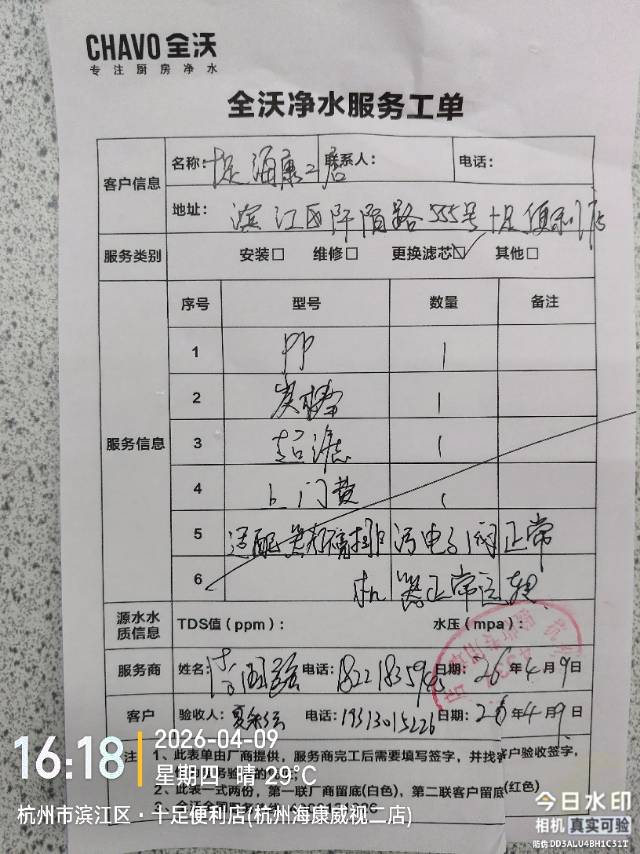 CHAVO 全沃
专注厨房净水
全沃净水服务工单
客户信息
名称: 十足海康二店 联系人: 电话:
地址: 滨江区阡陌路555号十足便利店
服务类别 安装□ 维修□ 更换滤芯☑ 其他□
服务信息
序号 型号 数量 备注
1 PP 1
2 1
3 超滤 1
4 上门费 1
5 排污电子阀正常
6 机器正常运转
源水水质信息 TDS值（ppm）: 水压（mpa）:
服务商 姓名: 电话: 日期: 26年4月9日
客户 验收人: 电话: 19313015226 日期: 26年4月9日
注 1、此表单由厂商提供，服务商完工后需要填写签字，并找 客户验收签字，
2、此表一式两份，第一联厂商留底(白色)，第二联客户留底(红色)
16:18
2026-04-09
星期四 晴 29℃
杭州市滨江区·十足便利店(杭州海康威视二店)
今日水印
相机 真实可验
防伪 DD3ALU4BH1C31T